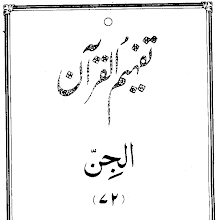 تفہیم القرآن
الجِنّ
(۷۲)